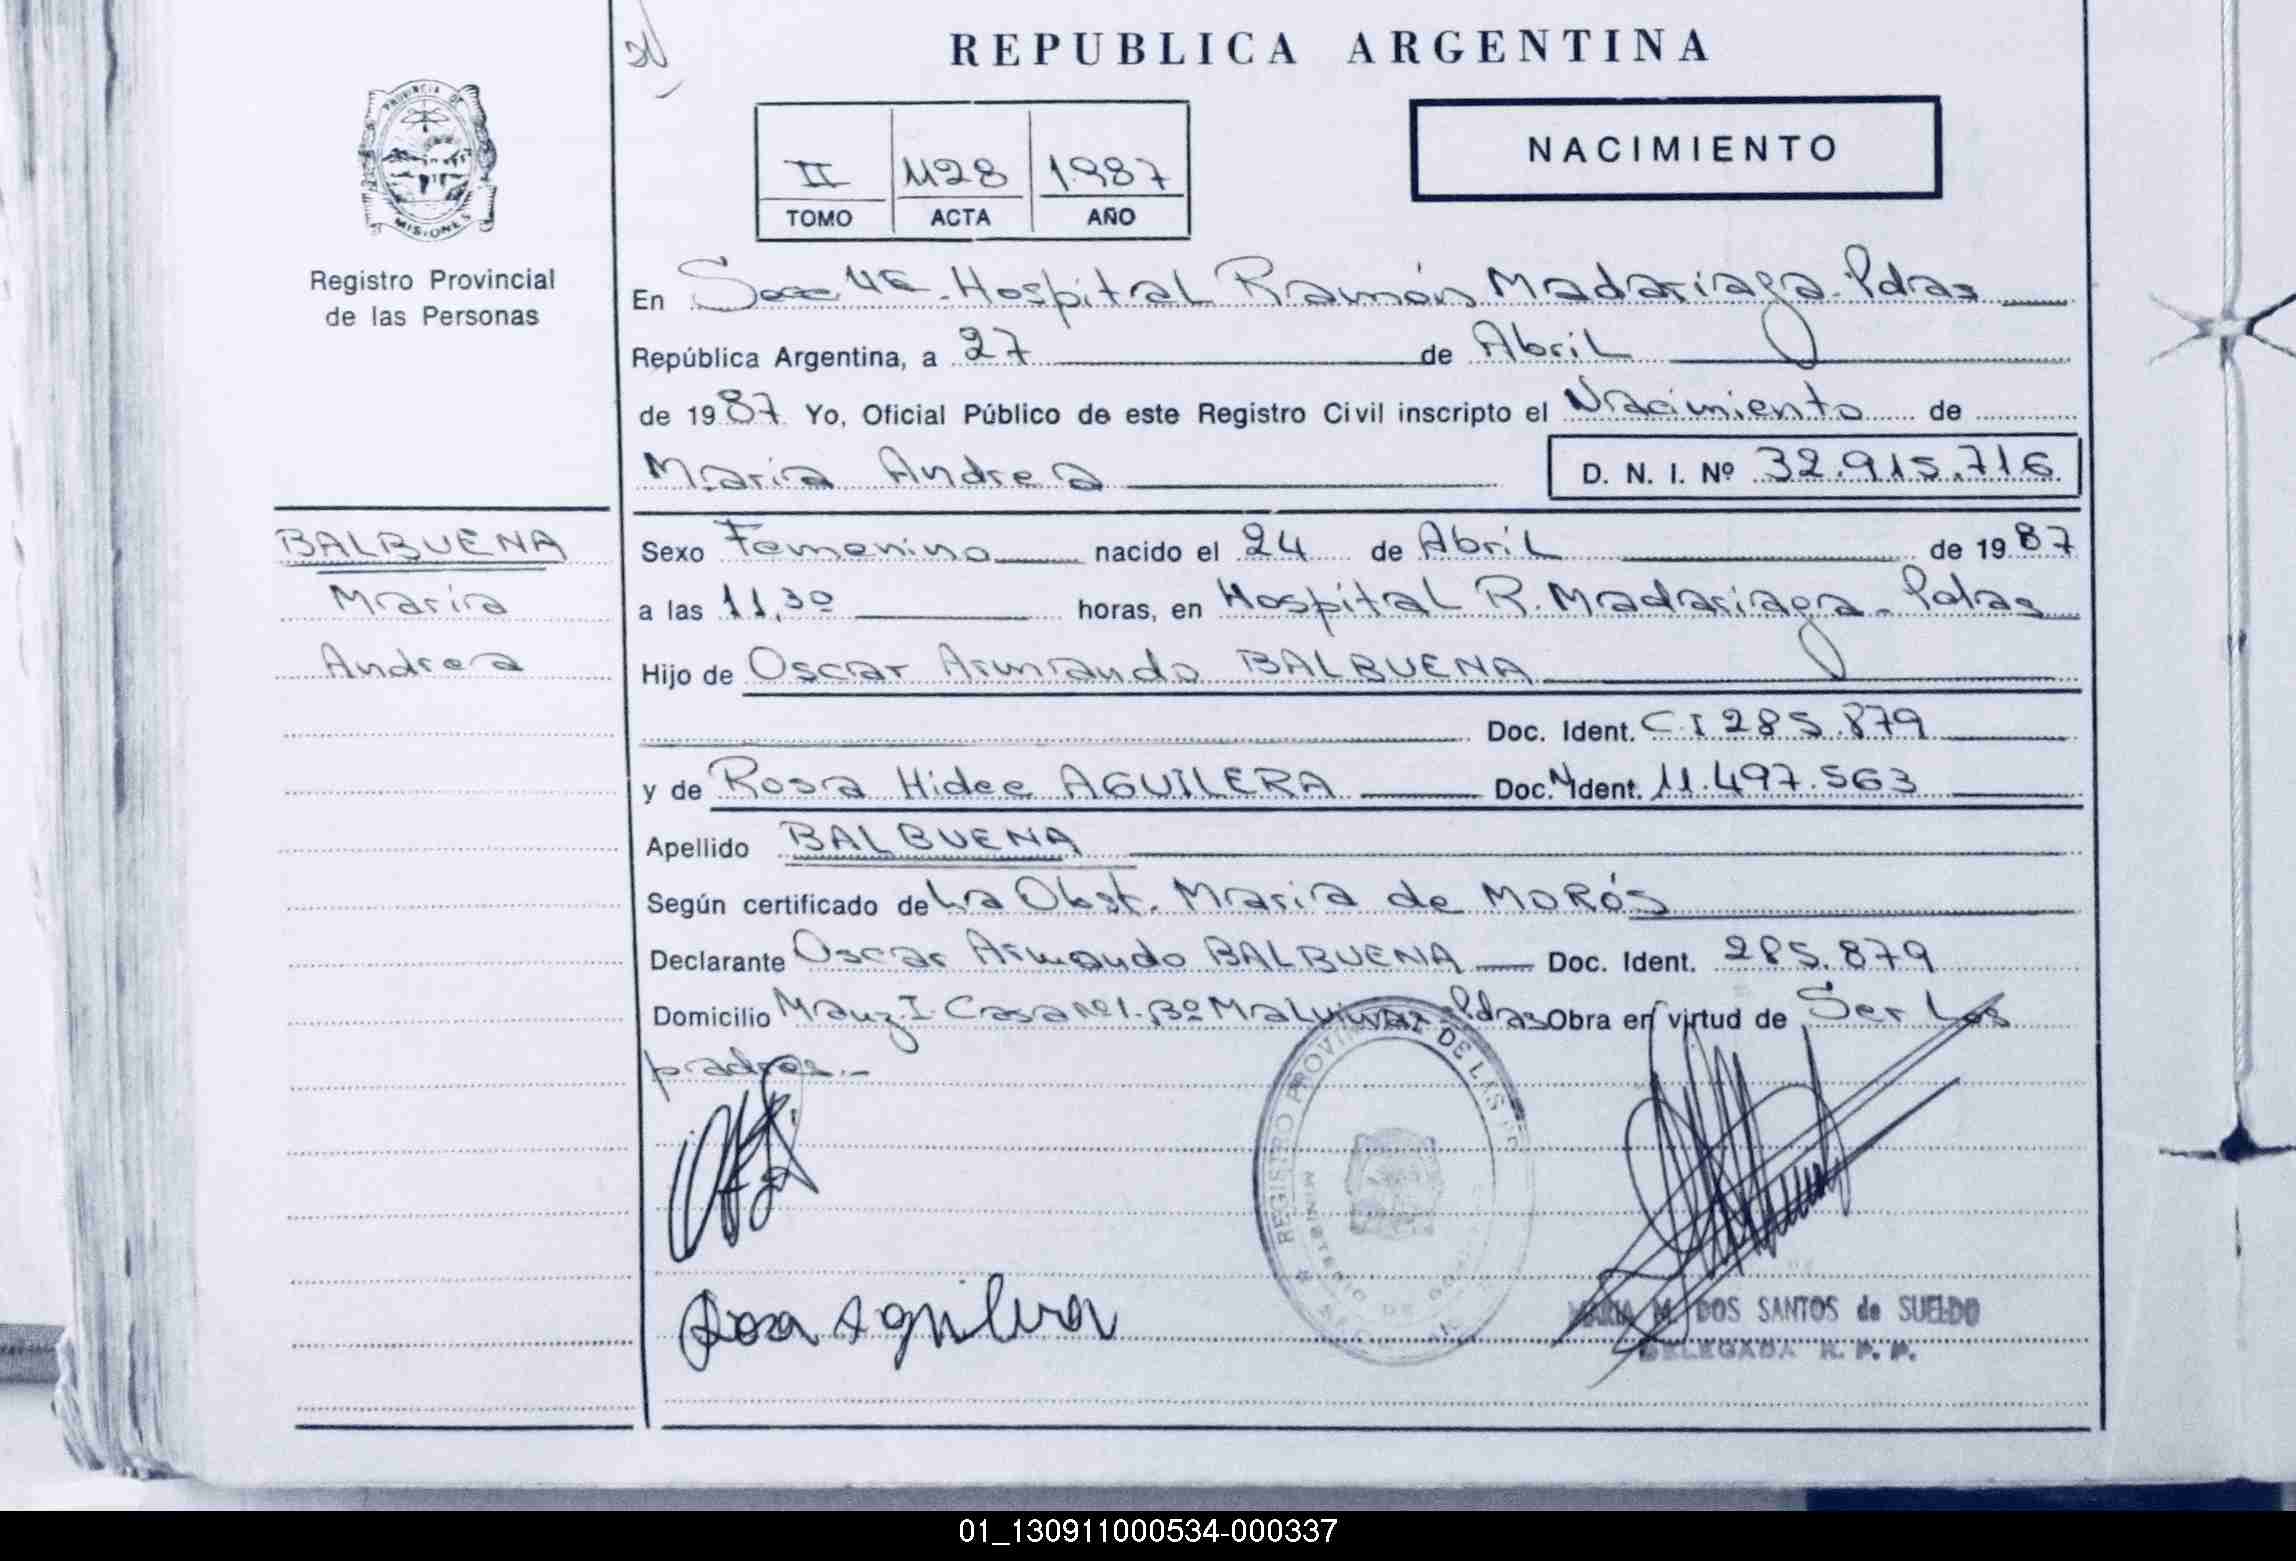 REPUBLICA ARGENTINA
PROVINCIA DE
MISIONES
Registro Provincial
de las Personas
II 1128 1987
TOMO ACTA AÑO
NACIMIENTO
En Secc 4ª - Hospital Ramón Madariaga. Pdas
República Argentina, a 27 de Abril
de 1987 Yo, Oficial Público de este Registro Civil inscripto el Nacimiento de
María Andrea D. N. I. Nº 32.915.716
BALBUENA
María
Andrea
Sexo Femenino nacido el 24 de Abril de 1987
a las 11,30 horas, en Hospital R. Madariaga - Pdas
Hijo de Oscar Armando BALBUENA
Doc. Ident. C.I 285.879
y de Rosa Hidee AGUILERA Doc. Ident. 11.497.563
Apellido BALBUENA
Según certificado de La Obst. Maria de MORÓS
Declarante Oscar Armando BALBUENA Doc. Ident. 285.879
Domicilio Manz. I Casa Nº 1. Bº Malvinas Pdas Obra en virtud de Ser Los
padres.-
REGISTRO PROVINCIAL DE LAS PER
MINISTERIO DE GOBIERNO
Rosa Aguilera
MARIA M. DOS SANTOS de SUELDO
DELEGADA R. P. P.
01_130911000534-000337